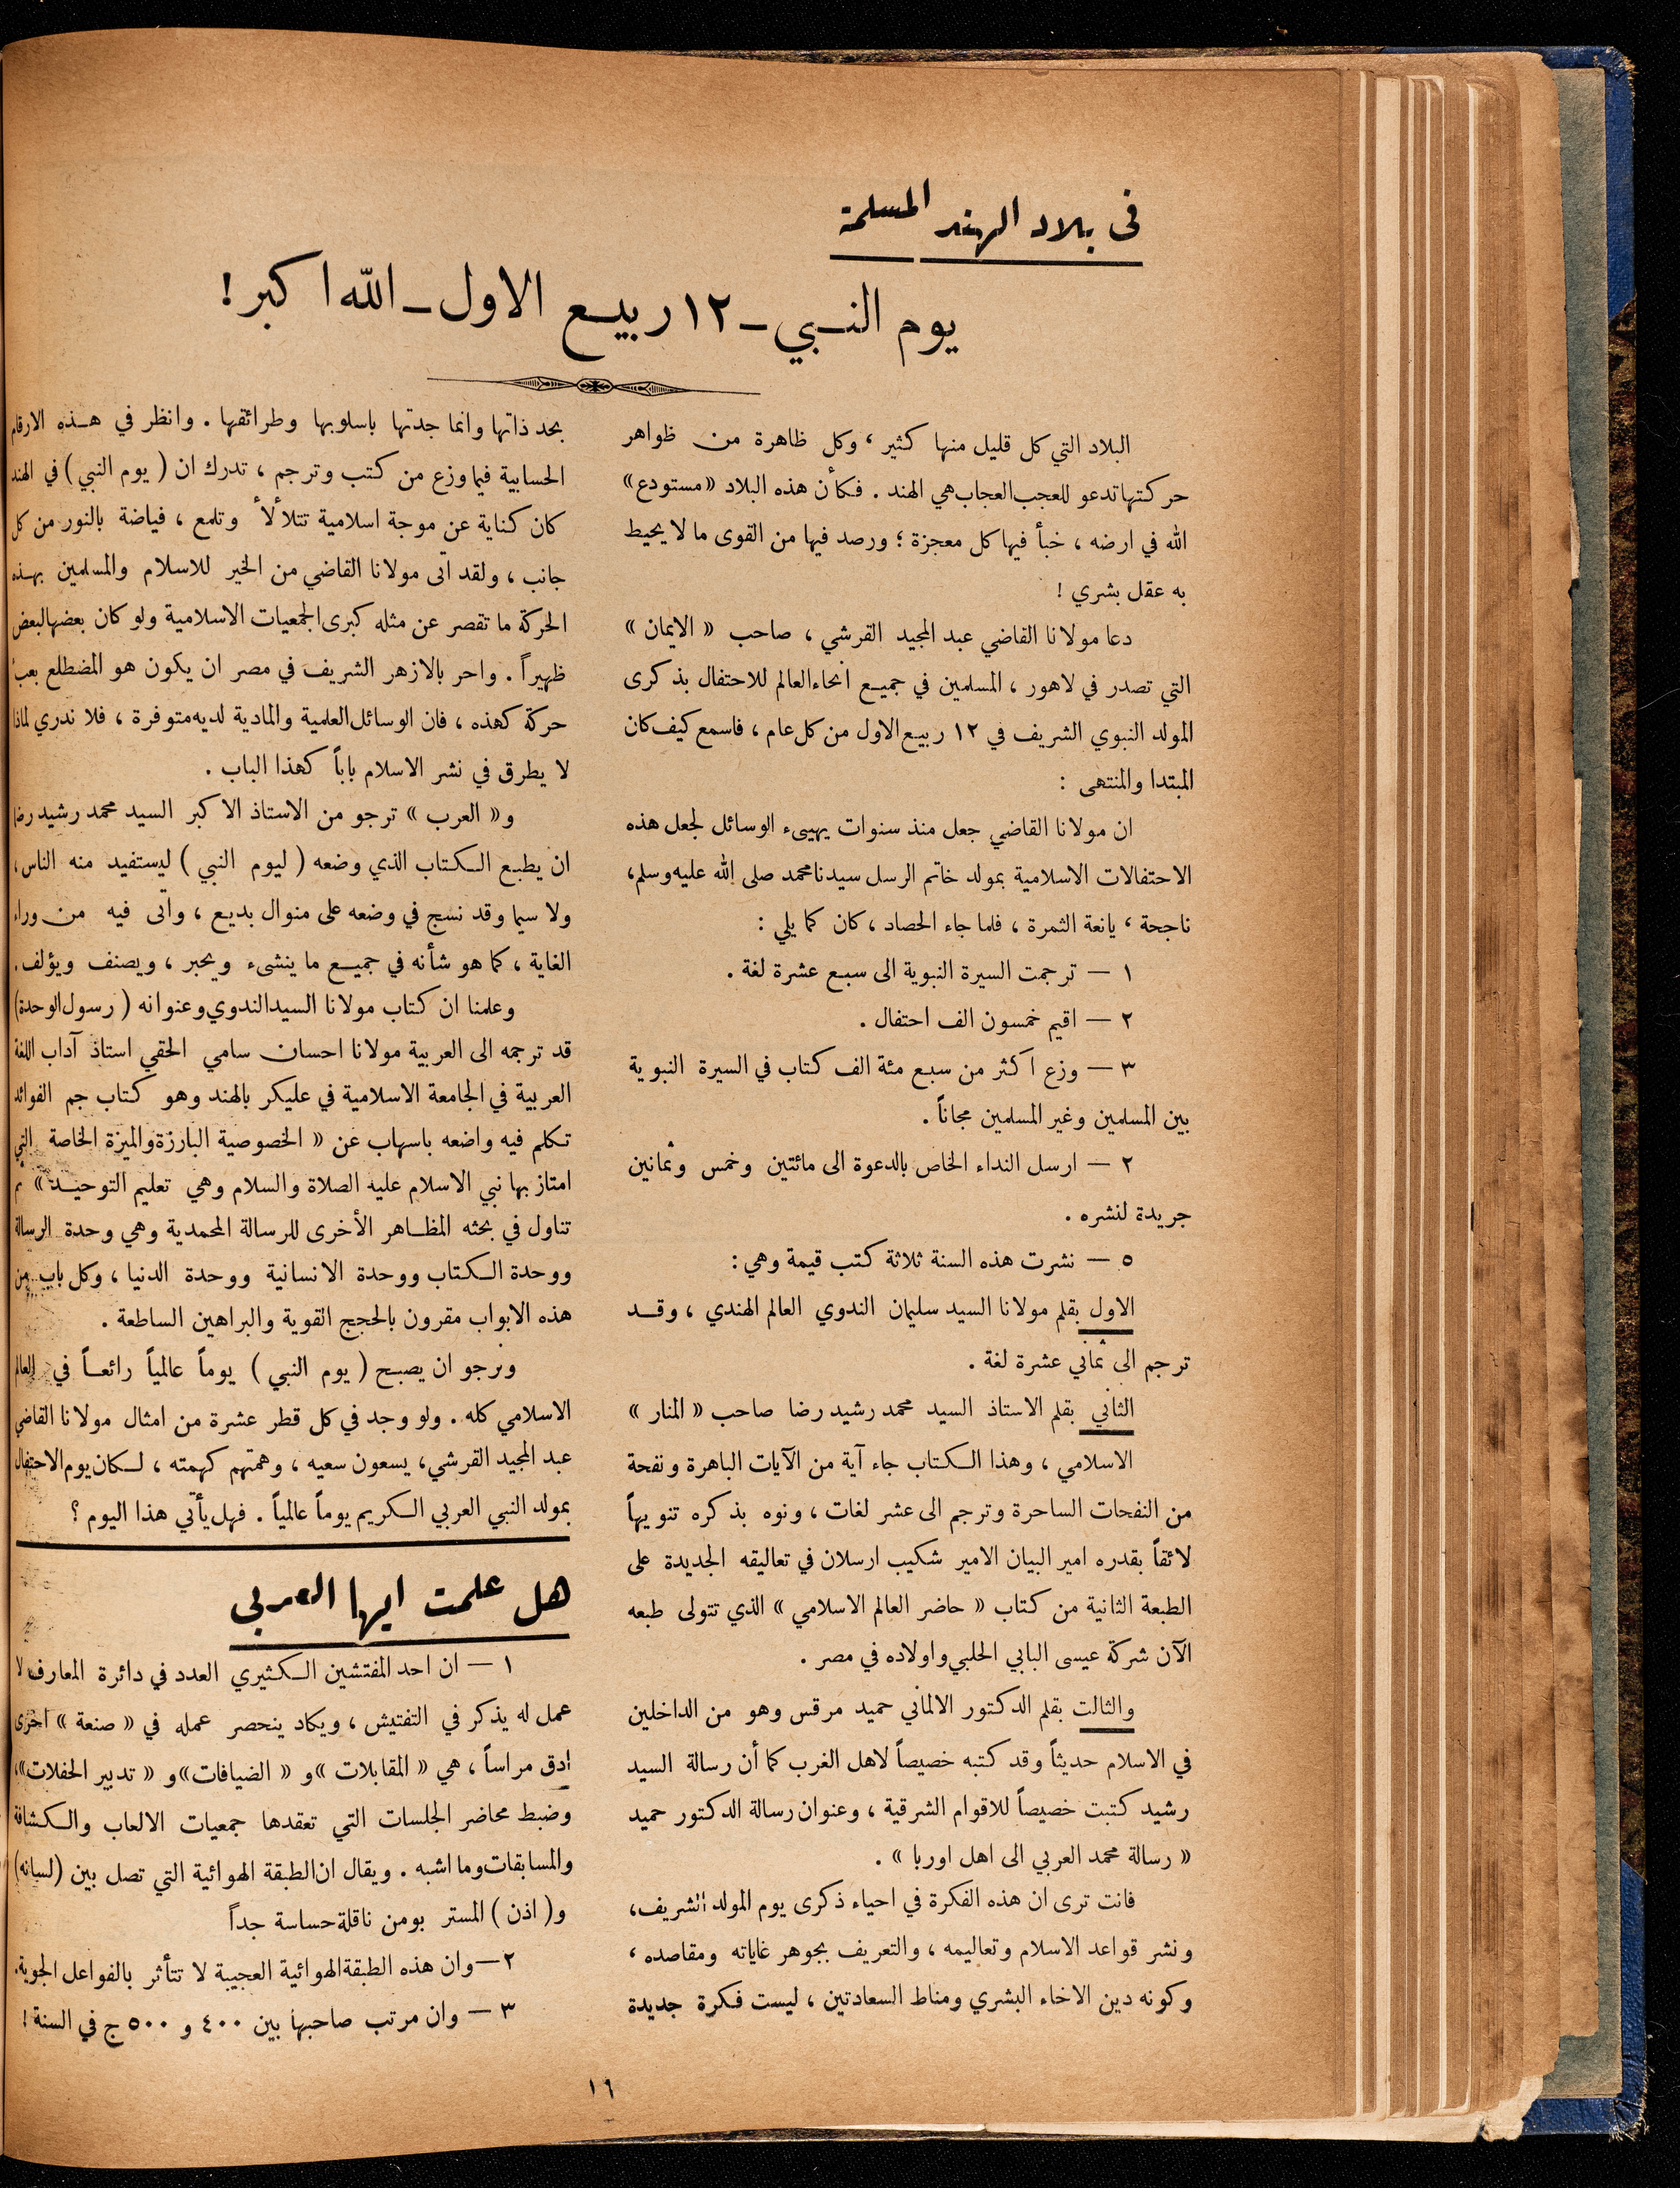 في بلاد الهند المسلمة
يوم النبي - ١٢ ربيع الاول - الله اكبر !
البلاد التي كل قليل منها كثير ، وكل ظاهرة من ظواهر
حركتها تدعو للعجب العجاب هي الهند . فكأن هذه البلاد «مستودع»
الله في ارضه ، خبأ فيها كل معجزة ؛ ورصد فيها من القوى ما لا يحيط
به عقل بشري !
دعا مولانا القاضي عبد المجيد القرشي ، صاحب « الايمان »
التي تصدر في لاهور ، المسلمين في جميع انحاء العالم للاحتفال بذكرى
المولد النبوي الشريف في ١٢ ربيع الاول من كل عام ، فاسمع كيف كان
المبتدا والمنتهى :
ان مولانا القاضي جعل منذ سنوات يهيىء الوسائل لجعل هذه
الاحتفالات الاسلامية بمولد خاتم الرسل سيدنا محمد صلى الله عليه وسلم ،
ناجحة ، يانعة الثمرة ، فلما جاء الحصاد ، كان كما يلي :
١ — ترجمت السيرة النبوية الى سبع عشرة لغة .
٢ — اقيم خمسون الف احتفال .
٣ — وزع اكثر من سبع مئة الف كتاب في السيرة النبوية
بين المسلمين وغير المسلمين مجاناً .
٢ — ارسل النداء الخاص بالدعوة الى مائتين وخمس وثمانين
جريدة لنشره .
٥ — نشرت هذه السنة ثلاثة كتب قيمة وهي :
الاول بقلم مولانا السيد سليمان الندوي العالم الهندي ، وقد
ترجم الى ثماني عشرة لغة .
الثاني بقلم الاستاذ السيد محمد رشيد رضا صاحب « المنار »
الاسلامي ، وهذا الكتاب جاء آية من الآيات الباهرة ونفحة
من النفحات الساحرة وترجم الى عشر لغات ، ونوه بذكره تنويهاً
لائقاً بقدره امير البيان الامير شكيب ارسلان في تعاليقه الجديدة على
الطبعة الثانية من كتاب « حاضر العالم الاسلامي » الذي تتولى طبعه
الآن شركة عيسى البابي الحلبي واولاده في مصر .
والثالت بقلم الدكتور الالماني حميد مرقس وهو من الداخلين
في الاسلام حديثاً وقد كتبه خصيصاً لاهل الغرب كما أن رسالة السيد
رشيد كتبت خصيصاً للاقوام الشرقية ، وعنوان رسالة الدكتور حميد
« رسالة محمد العربي الى اهل اوربا » .
فانت ترى ان هذه الفكرة في احياء ذكرى يوم المولد الشريف ،
ونشر قواعد الاسلام وتعاليمه ، والتعريف بجوهر غاياته ومقاصده ،
وكونه دين الاخاء البشري ومناط السعادتين ، ليست فكرة جديدة
بحد ذاتها وانما جدتها باسلوبها وطرائقها . وانظر في هذه الارقام
الحسابية فيما وزع من كتب وترجم ، تدرك ان ( يوم النبي ) في الهند
كان كناية عن موجة اسلامية تتلألأ وتلمع ، فياضة بالنور من كل
جانب ، ولقد اتى مولانا القاضي من الخير للاسلام والمسلمين بهذه
الحركة ما تقصر عن مثله كبرى الجمعيات الاسلامية ولو كان بعضها لبعض
ظهيراً . واحر بالازهر الشريف في مصر ان يكون هو المضطلع بعبء
حركة كهذه ، فان الوسائل العلمية والمادية لديه متوفرة ، فلا ندري لماذا
لا يطرق في نشر الاسلام باباً كهذا الباب .
و« العرب » ترجو من الاستاذ الاكبر السيد محمد رشيد رضا
ان يطبع الكتاب الذي وضعه ( ليوم النبي ) ليستفيد منه الناس ،
ولا سيما وقد نسج في وضعه على منوال بديع ، واتى فيه من وراء
الغاية ، كما هو شأنه في جميع ما ينشىء ويحبر ، ويصنف ويؤلف .
وعلمنا ان كتاب مولانا السيد الندوي وعنوانه ( رسول الوحدة )
قد ترجمه الى العربية مولانا احسان سامي الحقي استاذ آداب اللغة
العربية في الجامعة الاسلامية في عليكر بالهند وهو كتاب جم الفوائد
تكلم فيه واضعه باسهاب عن « الخصوصية البارزة والميزة الخاصة التي
امتاز بها نبي الاسلام عليه الصلاة والسلام وهي تعليم التوحيد » ثم
تناول في بحثه المظاهر الأخرى للرسالة المحمدية وهي وحدة الرسالة
ووحدة الكتاب ووحدة الانسانية ووحدة الدنيا ، وكل باب من
هذه الابواب مقرون بالحجج القوية والبراهين الساطعة .
ونرجو ان يصبح ( يوم النبي ) يوماً عالمياً رائعاً في العالم
الاسلامي كله . ولو وجد في كل قطر عشرة من امثال مولانا القاضي
عبد المجيد القرشي ، يسعون سعيه ، وهمتهم كهمته ، لكان يوم الاحتفال
بمولد النبي العربي الكريم يوماً عالمياً . فهل يأتي هذا اليوم ؟
هل علمت ايها العربي
١ — ان احد المفتشين الكثيري العدد في دائرة المعارف لا
عمل له يذكر في التفتيش ، ويكاد ينحصر عمله في « صنعة » اخرى
أدق مراساً ، هي « المقابلات » و « الضيافات » و « تدبير الحفلات » ،
وضبط محاضر الجلسات التي تعقدها جمعيات الالعاب والكشافة
والمسابقات وما اشبه . ويقال ان الطبقة الهوائية التي تصل بين (لسانه)
و ( اذن ) المستر بومن ناقلة حساسة جداً
٢ — وان هذه الطبقة الهوائية العجيبة لا تتأثر بالفواعل الجوية .
٣ — وان مرتب صاحبها بين ٤٠٠ و ٥٠٠ ج في السنة !
١٦